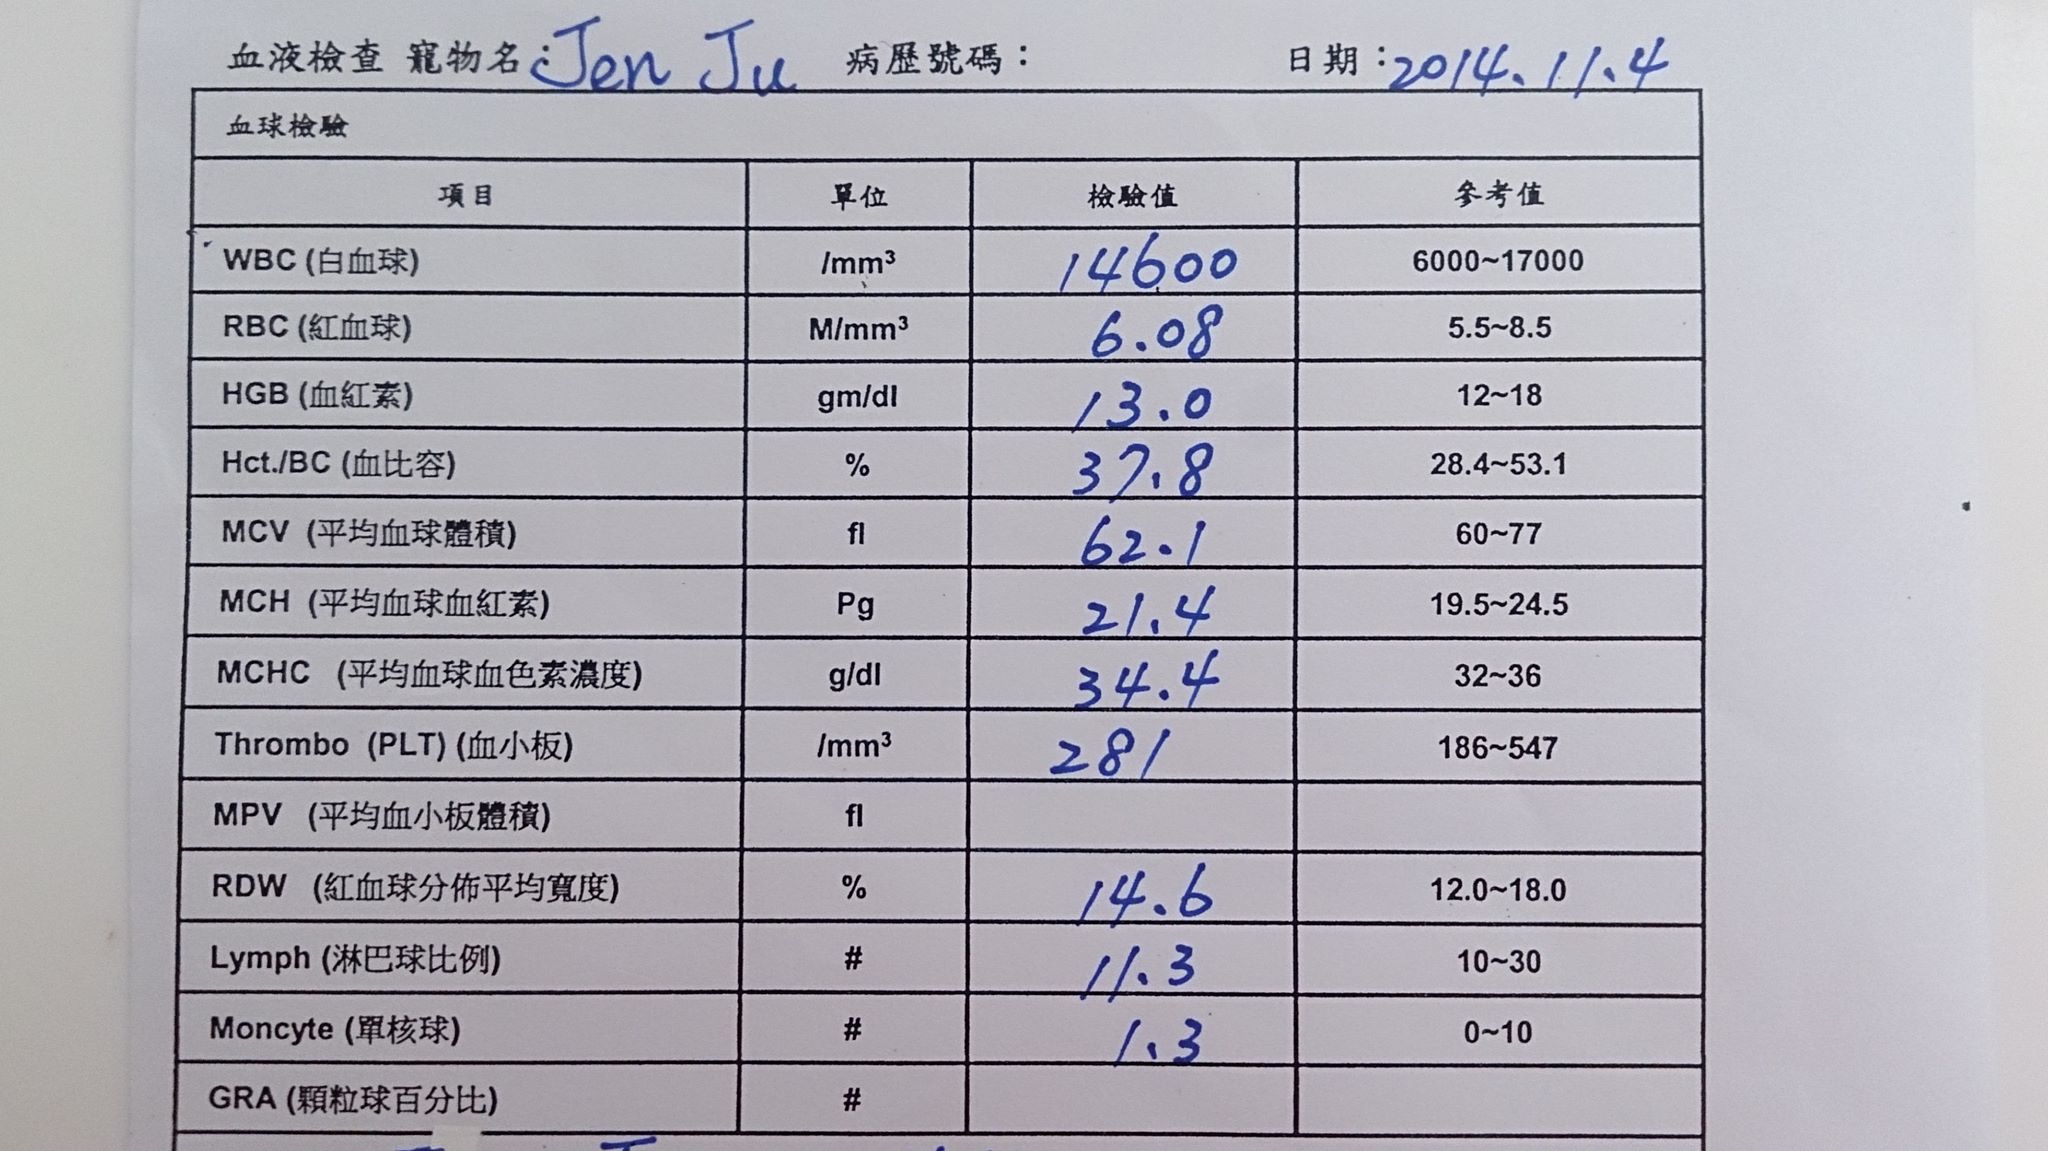 血液檢查 寵物名：Jen Ju 病歷號碼： 日期：2014.11.4
血球檢驗
項目 單位 檢驗值 參考值
WBC (白血球) /mm³ 14600 6000~17000
RBC (紅血球) M/mm³ 6.08 5.5~8.5
HGB (血紅素) gm/dl 13.0 12~18
Hct./BC (血比容) % 37.8 28.4~53.1
MCV (平均血球體積) fl 62.1 60~77
MCH (平均血球血紅素) Pg 21.4 19.5~24.5
MCHC (平均血球血色素濃度) g/dl 34.4 32~36
Thrombo (PLT) (血小板) /mm³ 281 186~547
MPV (平均血小板體積) fl
RDW (紅血球分佈平均寬度) % 14.6 12.0~18.0
Lymph (淋巴球比例) # 11.3 10~30
Moncyte (單核球) # 1.3 0~10
GRA (顆粒球百分比) #